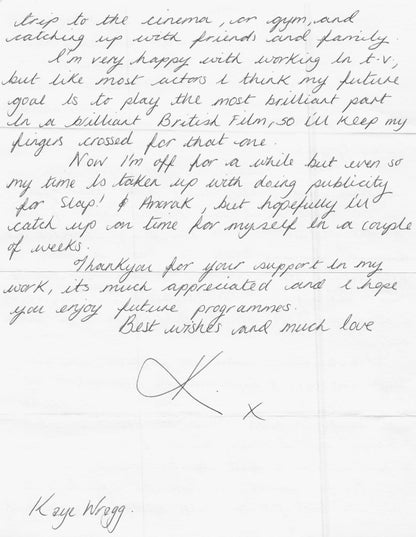 trip to the cinema, or gym, and
catching up with friends and family.
I'm very happy with working in t.v,
but like most actors i think my future
goal is to play the most brilliant part
in a brilliant British Film, so i'll keep my
fingers crossed for that one.
Now I'm off for a while but even so
my time is taken up with doing publicity
for Slap! & Anorak, but hopefully i'll
catch up on time for myself in a couple
of weeks.
Thankyou for your support in my
work, its much appreciated and i hope
you enjoy future programmes.
Best wishes and much love
K. x
Kaye Wragg.